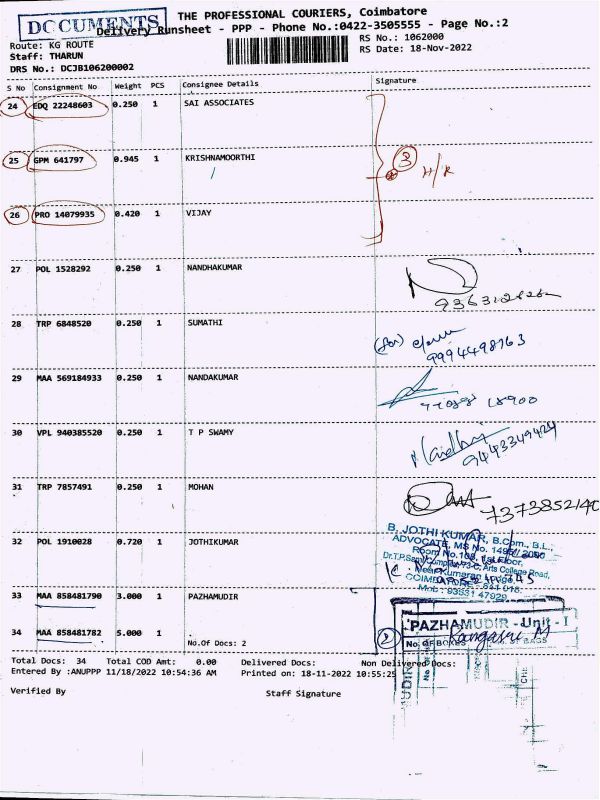 DOCUMENTS
THE PROFESSIONAL COURIERS, Coimbatore
Delivery Runsheet - PPP - Phone No.:0422-3505555 - Page No.:2
Route: KG ROUTE
RS No.: 1062000
Staff: THARUN
RS Date: 18-Nov-2022
DRS No.: DCJB106200002
S No Consignment No Weight PCS Consignee Details Signature
24 EDQ 22248603 0.250 1 SAI ASSOCIATES
25 GPM 641797 0.945 1 KRISHNAMOORTHI
3 H/R
26 PRO 14079935 0.420 1 VIJAY
27 POL 1528292 0.250 1 NANDHAKUMAR
28 TRP 6848520 0.250 1 SUMATHI
(for)
9994498763
29 MAA 569184933 0.250 1 NANDAKUMAR
30 VPL 940385520 0.250 1 T P SWAMY
9443349424
31 TRP 7857491 0.250 1 MOHAN
7373852140
32 POL 1910028 0.720 1 JOTHIKUMAR
B. JOTHI KUMAR, B.Com., B.L.,
ADVOCATE, MS No.
Room No.
Arts College Road,
COIMBATORE - 641 018.
Mob : 93631 47929
33 MAA 858481790 3.000 1 PAZHAMUDIR
34 MAA 858481782 5.000 1
No.Of Docs: 2
2
PAZHAMUDIR - Unit - I
No. OF BOXES
BAGS
Total Docs: 34 Total COD Amt: 0.00 Delivered Docs: Non Delivered Docs:
Entered By :ANUPPP 11/18/2022 10:54:36 AM Printed on: 18-11-2022 10:55:25
Verified By Staff Signature